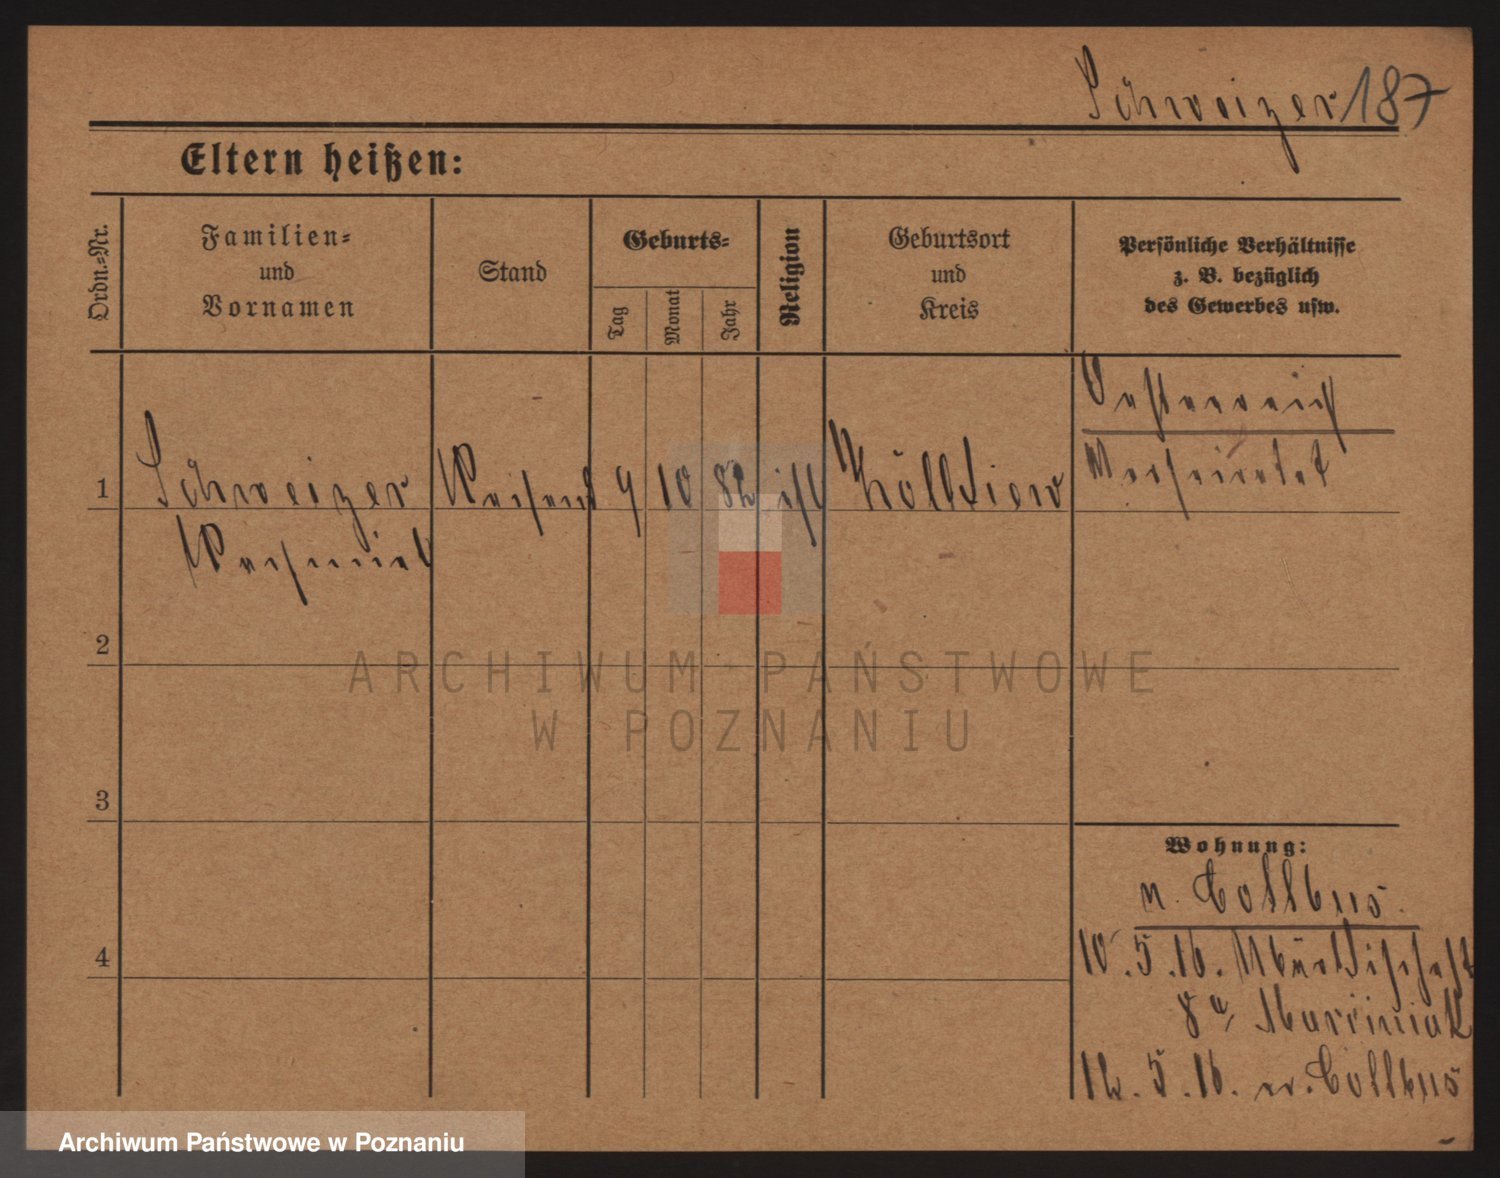 Schweizer 187
Eltern heißen:
Ordn.-Nr.
Familien-
und
Vornamen
Stand
Geburts-
Tag
Monat
Jahr
Religion
Geburtsort
und
Kreis
Persönliche Verhältnisse
z. B. bezüglich
des Gewerbes usw.
Oesterreich
Verheiratet
1
Schweizer
9 10 82
2
3
4
Wohnung:
n. Cottbus.
10.5.16.
8a, Marciniak
12.5.16. n. Cottbus
ARCHIWUM PAŃSTWOWE
W POZNANIU
Archiwum Państwowe w Poznaniu